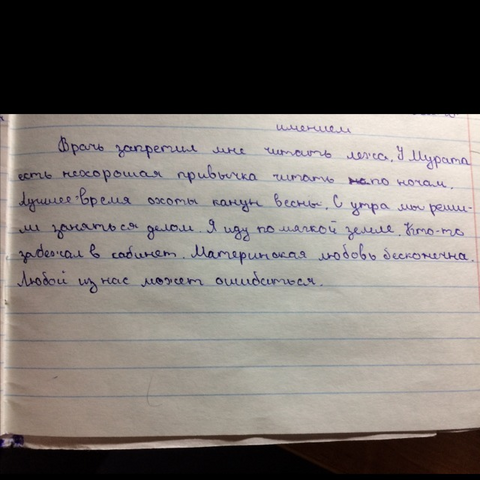 имением
Врачь запретил мне читать лежа. У Мурата
есть нехорошая привычка читать по ночам.
Лучшее время охоты канун весны. С утра мы реши-
ли заняться делом. Я иду по мягкой земле. Кто-то
забежал в кабинет. Материнская любовь бесконечна.
Любой из нас может ошибиться.